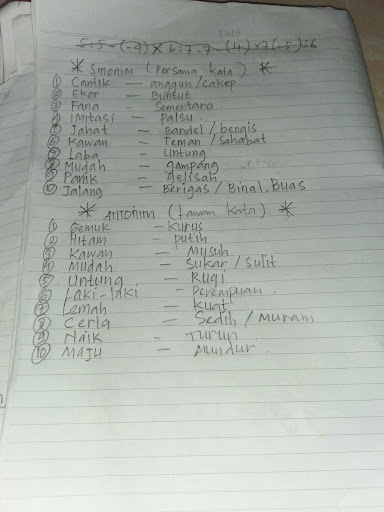 5.5-(-4) x 6:7.7-(4) x 7(-5):6
* Sinonim (Persama kata) *
① Cantik – anggun/cakep
② Ekor – Buntut
③ Fana – Sementara
④ imitasi – Palsu.
⑤ Jahat – Bandel/bengis
⑥ Kawan – Teman/Sahabat
⑦ Laba – Untung
⑧ Mudah – gampang
⑨ Panik – gelisah
⑩ Jalang – Berigas/Binal.Buas
* Autonim (Lawan Kata) *
① Gemuk – Kurus
② Hitam – putih
③ Kawan – Musuh
④ Mudah – Sukar/Sulit
⑤ Untung – Rugi
⑥ Laki-laki – Perempuan.
⑦ Lemah – Kuat
⑧ Ceria – Sedih/Muram
⑨ Naik – Turun
⑩ Maju – Mundur.